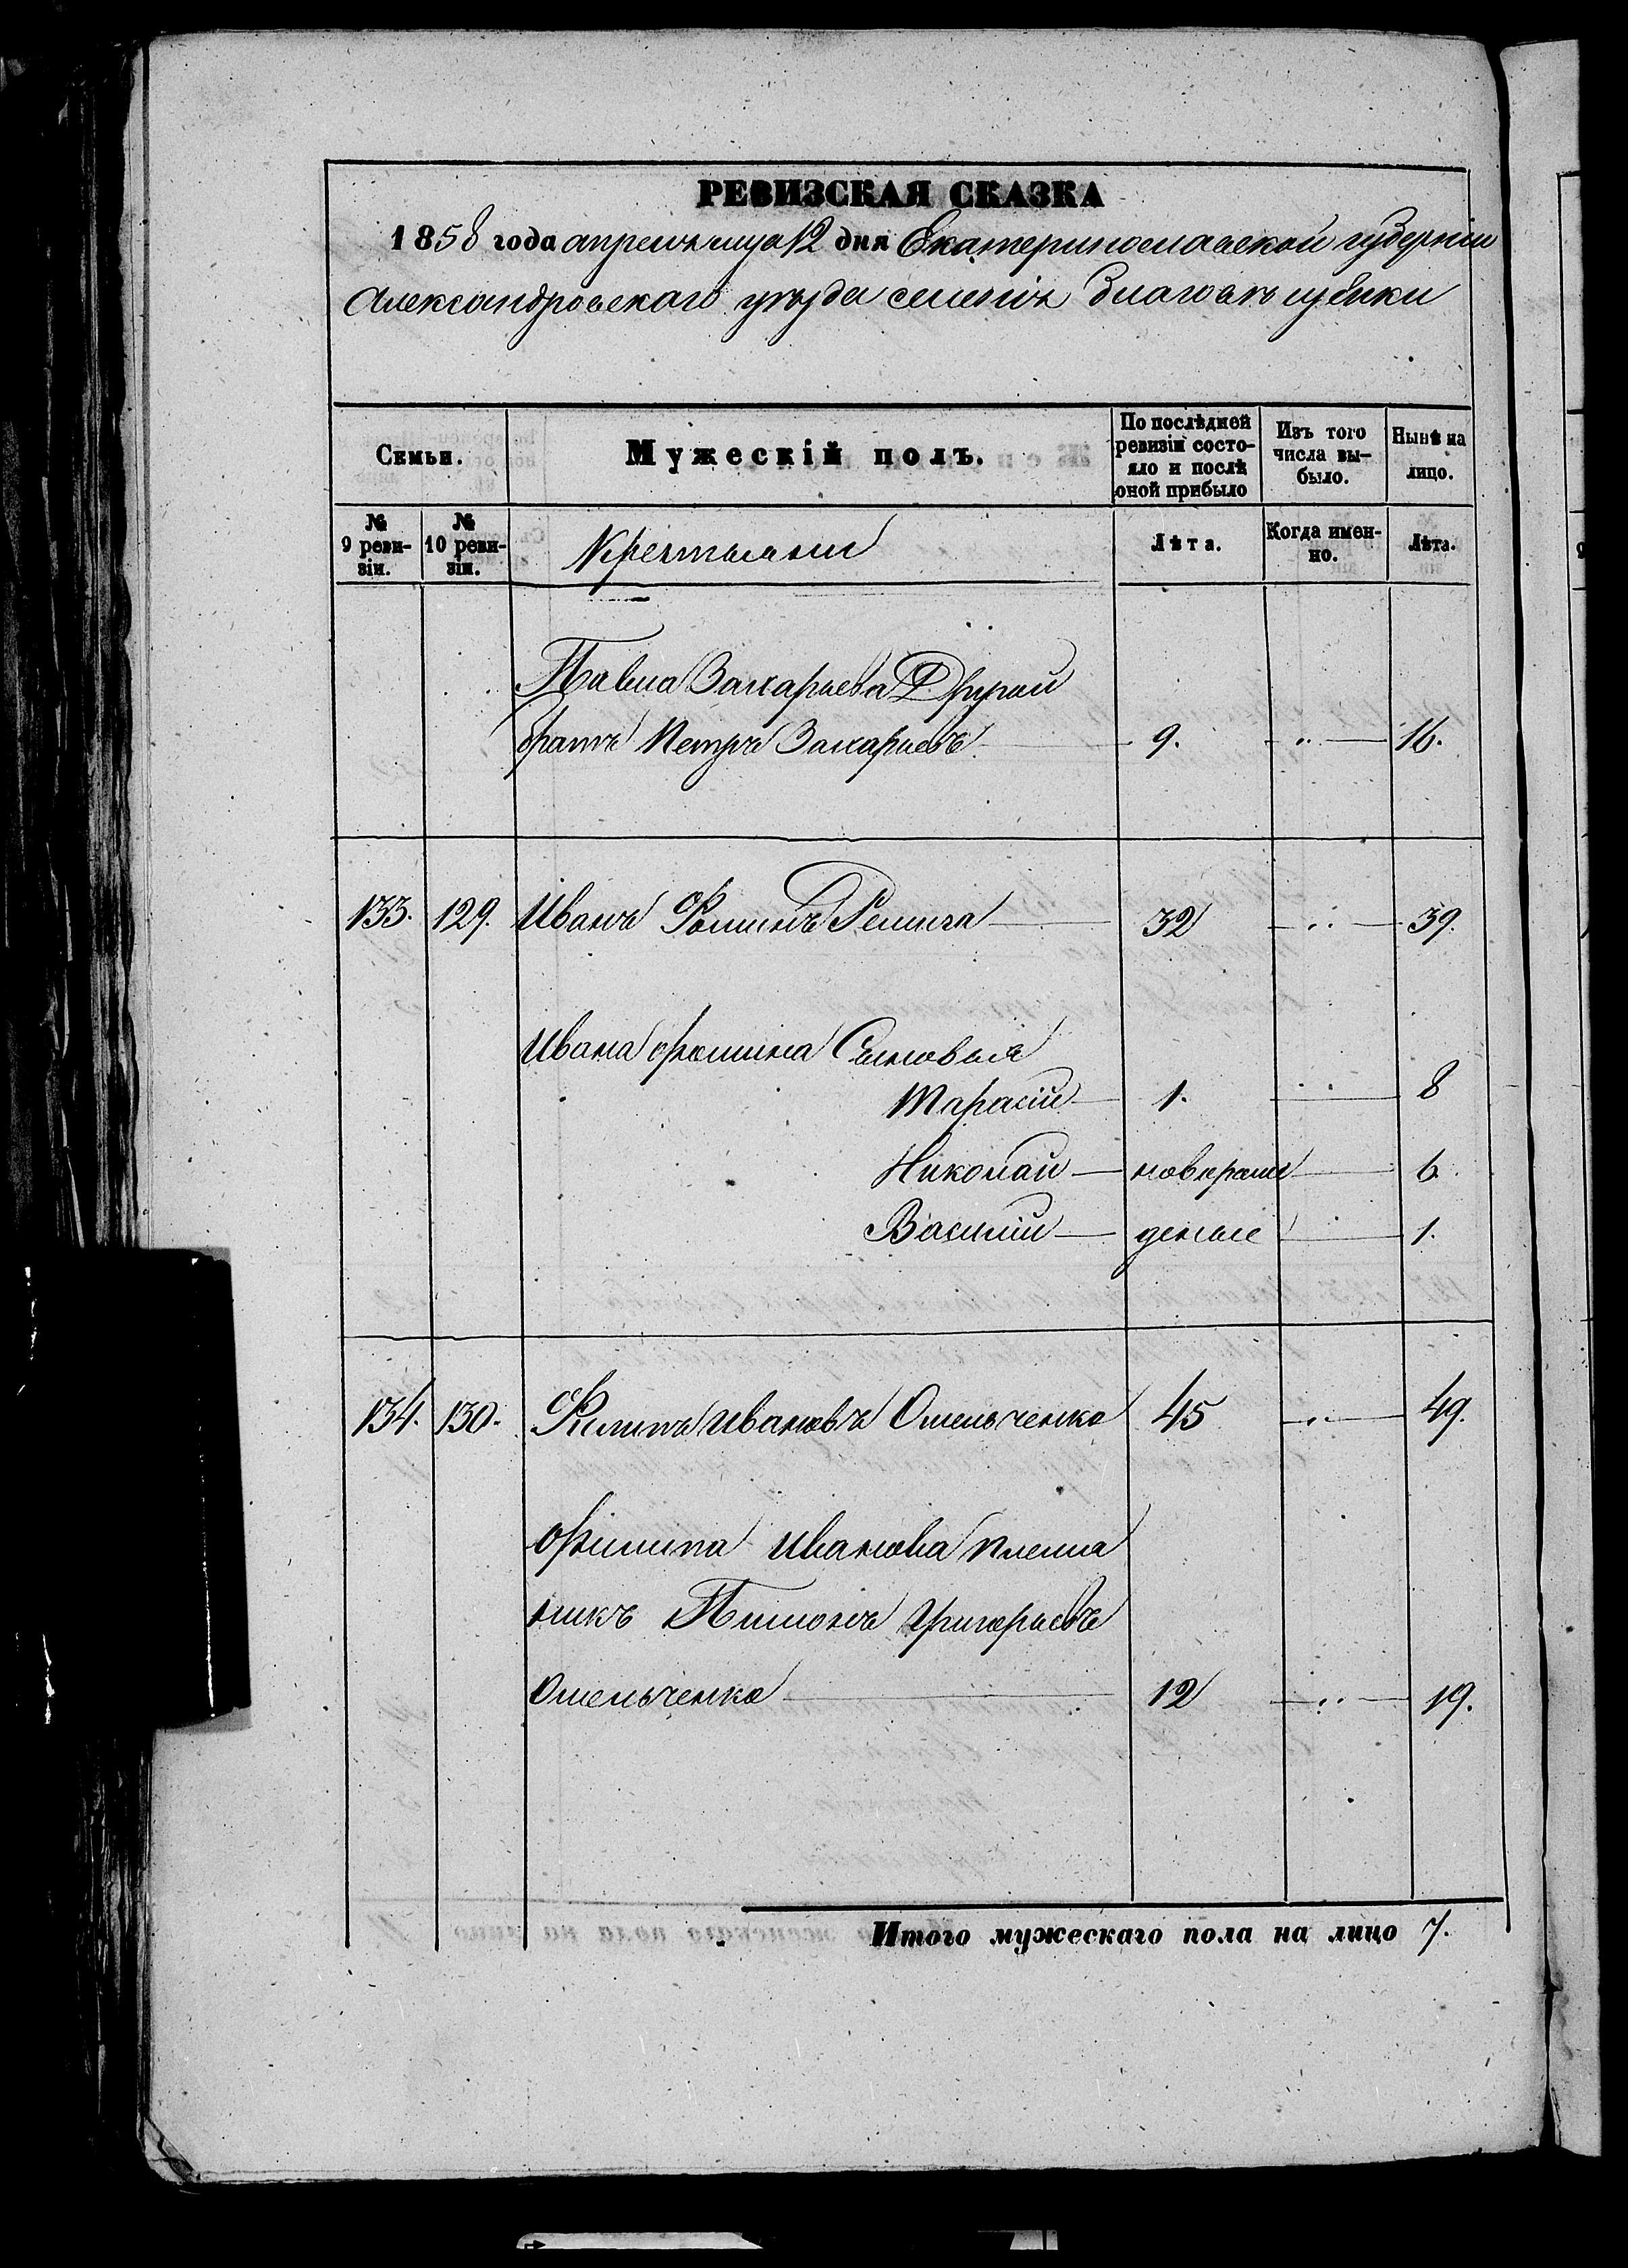 РЕВИЗСКАЯ СКАЗКА
1858 года апреля м-ца 12 дня Екатеринославской губернiи
Александровскаго уѣзда селенiя
Семьи.
Мужескiй полъ.
По послѣдней ревизiи состояло и послѣ оной прибыло
Изъ того числа выбыло.
Нынѣ на лицо.
№ 9 ревизiи.
№ 10 ревизiи.
Крестьяне
Лѣта.
Когда именно.
Лѣта.
Павла Захарьева Другой
братъ Петръ Захарьевъ 9. 16.
133. 129. Иванъ Фоминъ 32 39.
Ивана Фомина Сыновья
Тарасiй 1. 8
Николай новорож 6.
Василiй деные 1.
134. 130. Филипъ Ивановъ Омельченко 45 49.
Филипа Иванова племя
никъ Григорьевъ
Омельченко 12 19.
Итого мужескаго пола на лицо 7.